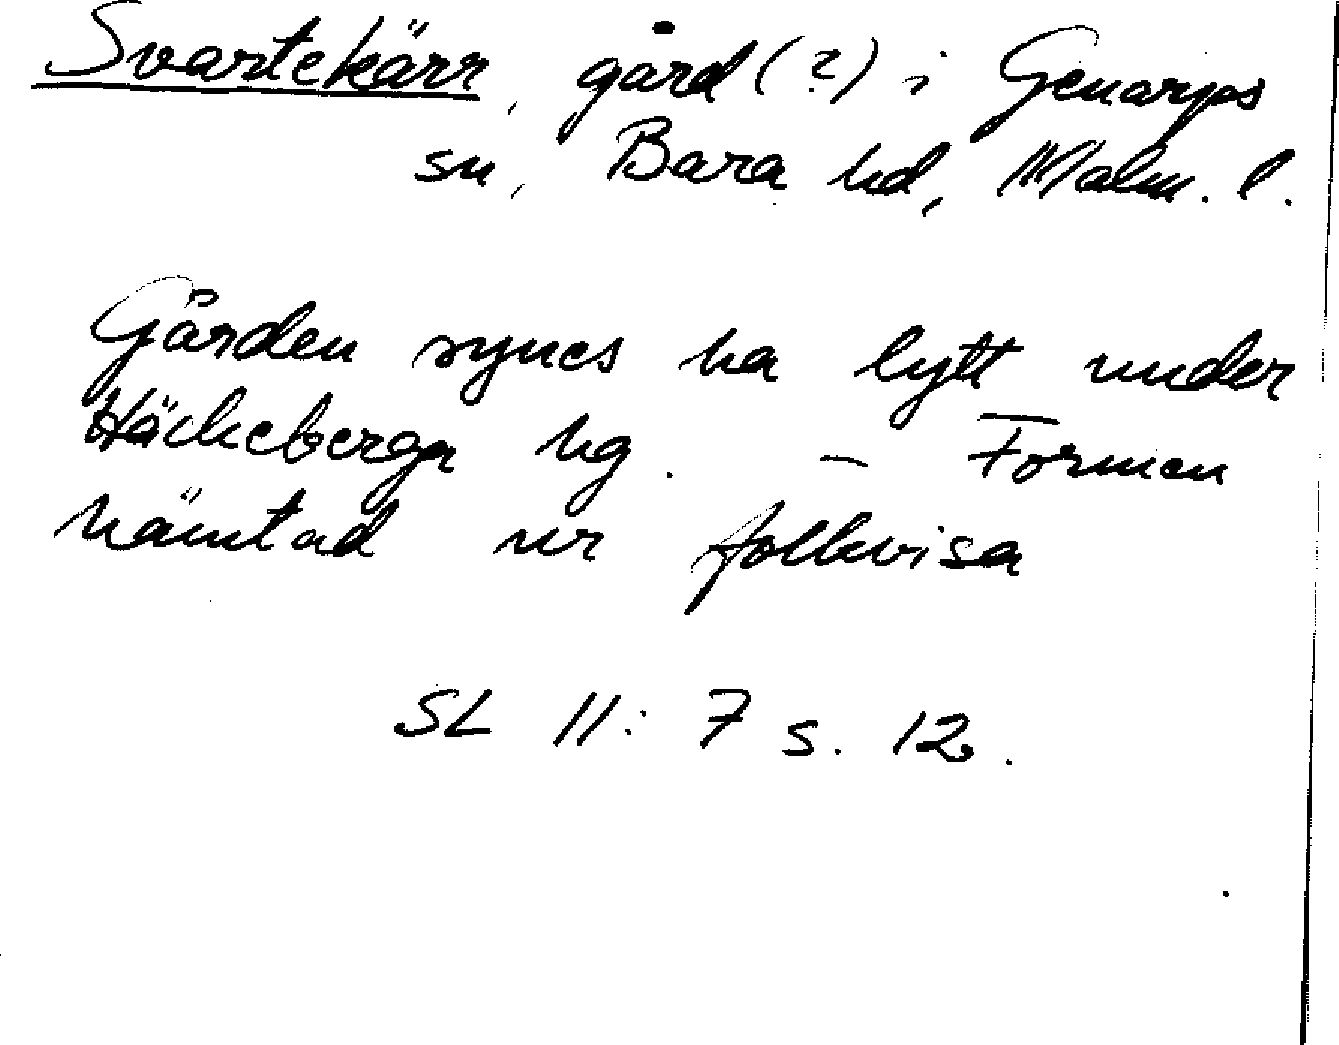 Svartekärr, gård (?) i Genarps
sn, Bara hd, Malm. l.
Gården synes ha lytt under
Häckeberga hg. – Formen
hämtad ur folkvisa
SL 11: 7 s. 12.